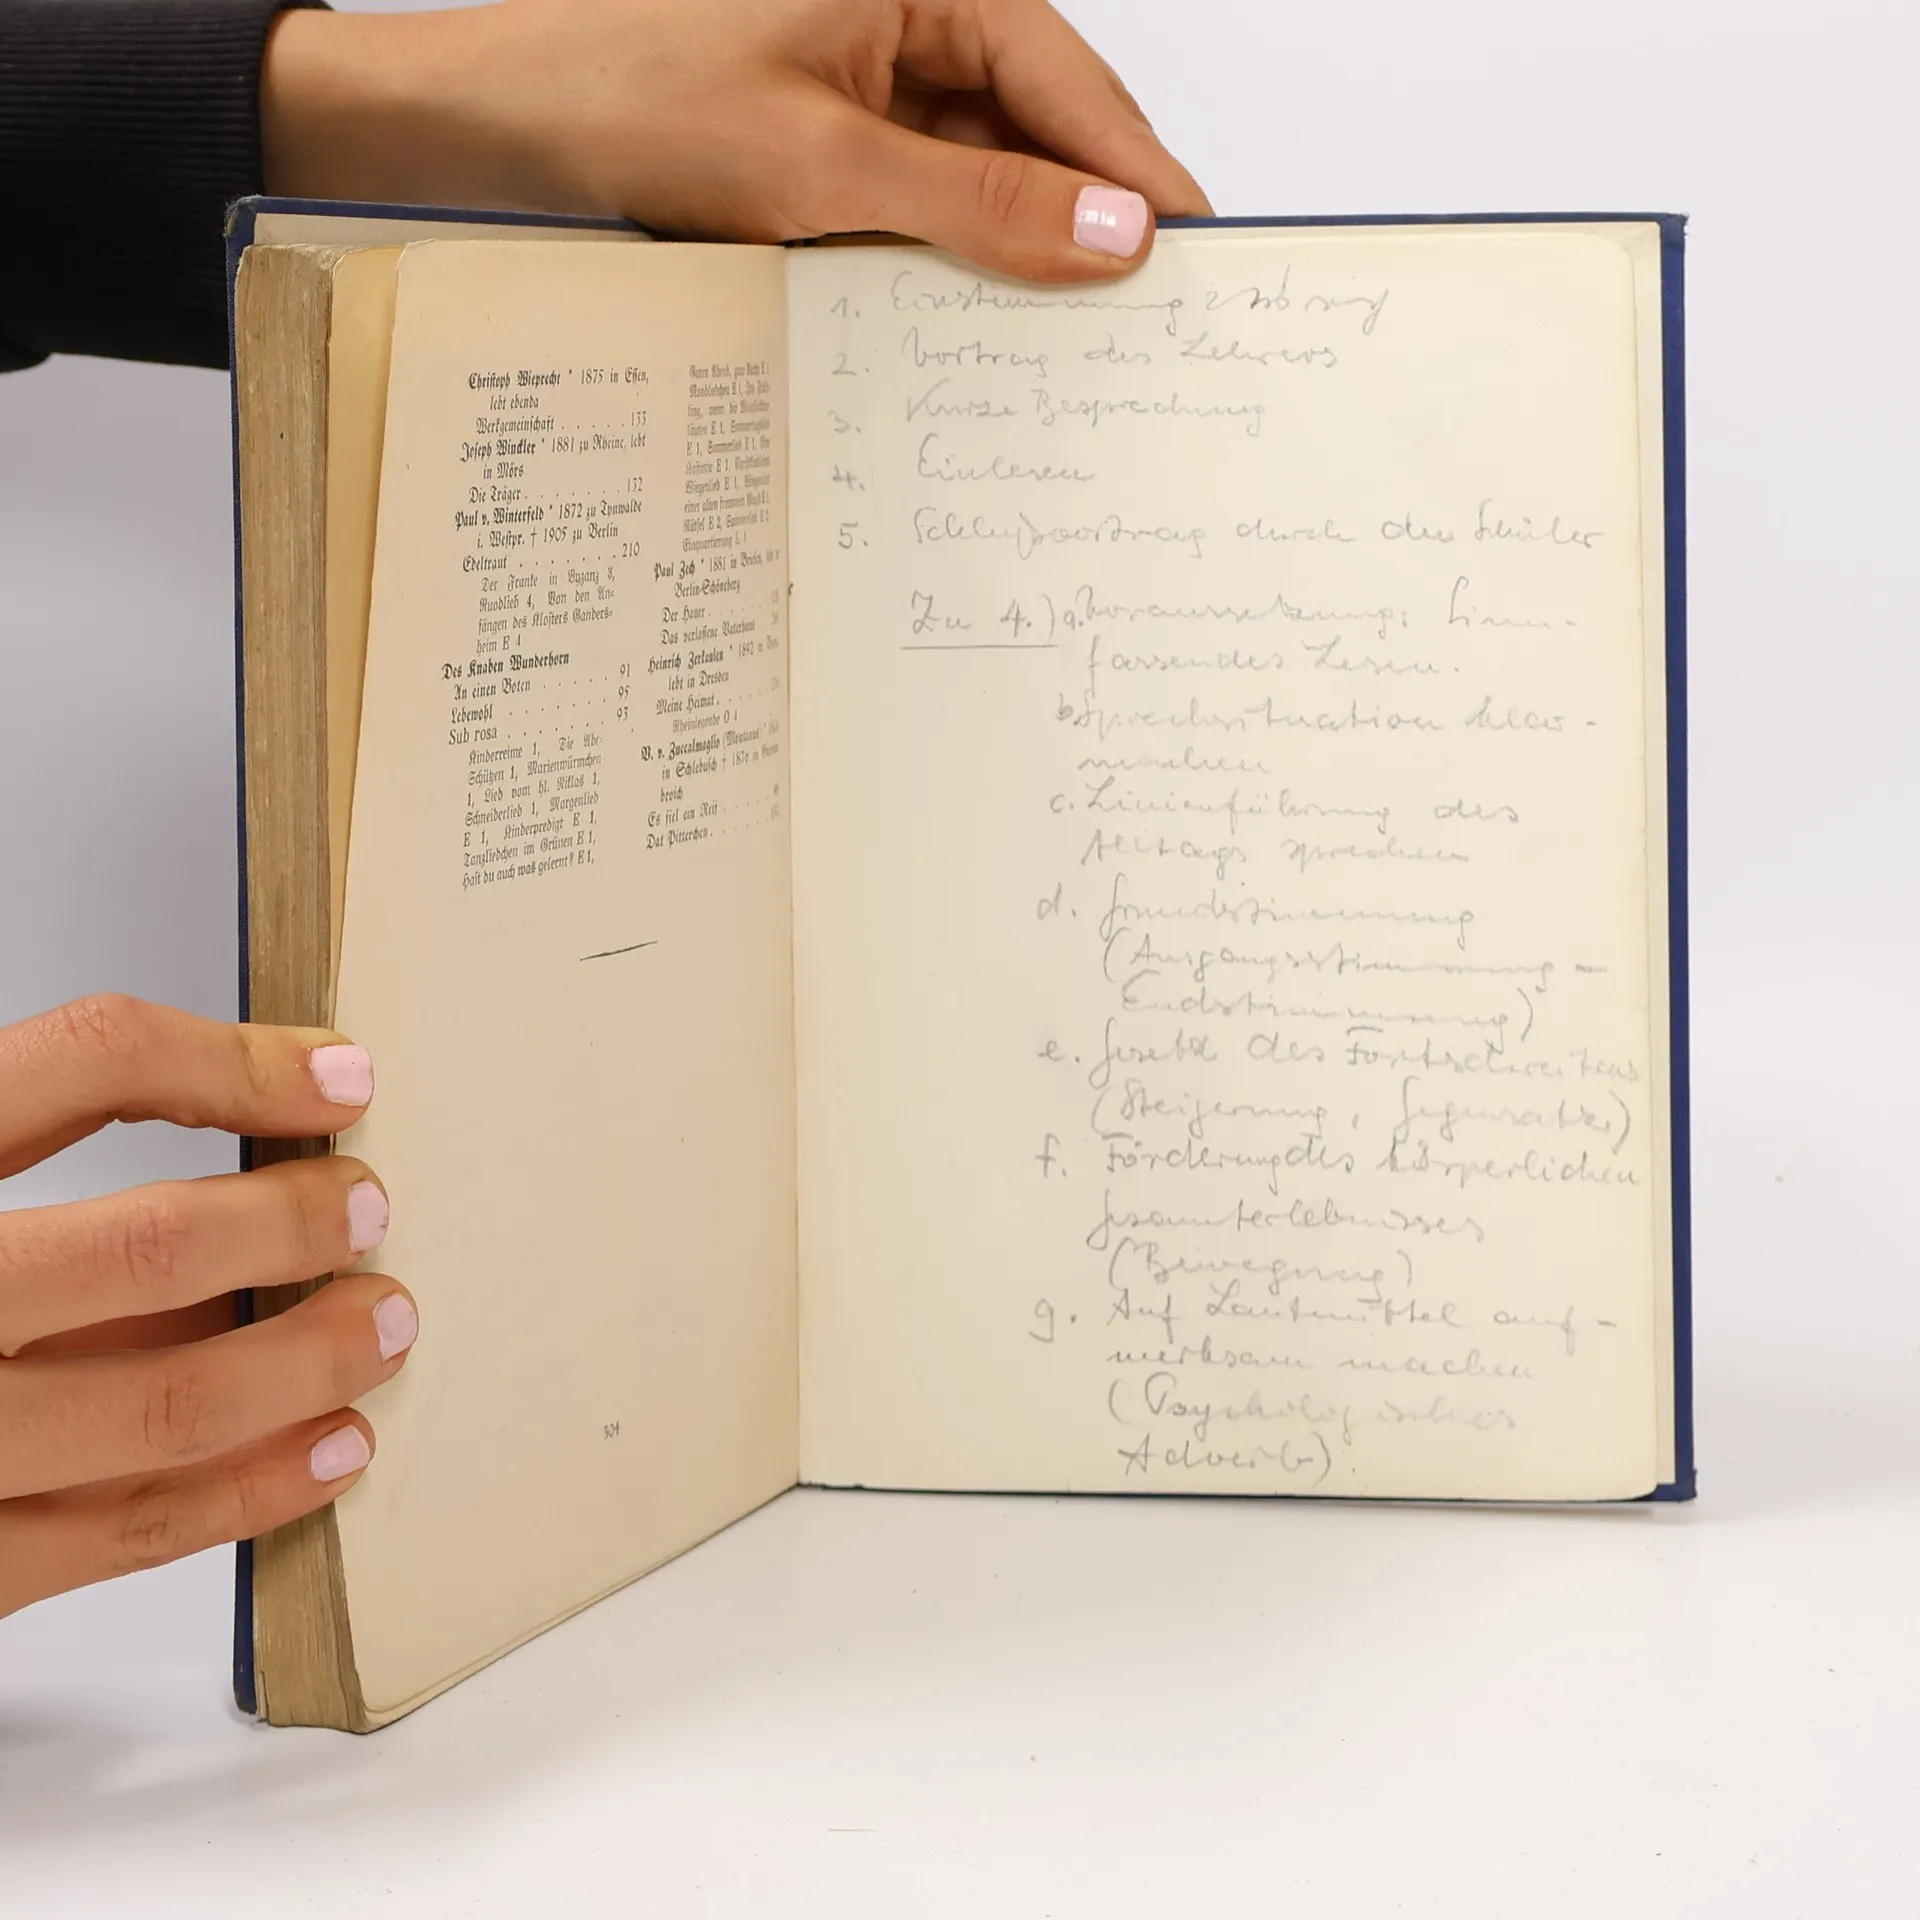 Christoph Wieprecht * 1875 in Essen,
lebt ebenda
Werkgemeinschaft . . . . . 133
Joseph Winckler * 1881 zu Rheine, lebt
in Mörs
Die Träger . . . . . . . 132
Paul v. Winterfeld * 1872 zu Tynwalde
i. Westpr. † 1905 zu Berlin
Edeltraut . . . . . . . 210
Der Franke in Byzanz 3,
Ruodlieb 4, Von den An-
fängen des Klosters Ganders-
heim E 4
Des Knaben Wunderhorn
An einen Boten . . . . . . 91
Lebewohl . . . . . . . 95
Sub rosa . . . . . . . 93
Kinderreime 1, Die Abc-
Schützen 1, Marienwürmchen
1, Lied vom hl. Niklas 1,
Schneiderlied 1, Morgenlied
E 1, Kinderpredigt E 1,
Tanzliedchen im Grünen E 1,
Hast du auch was gelernt? E 1,
Guten Abend, gute Nacht E 1,
Mondliedchen E 1,
ling, wenn die
läuten E 1,
E 1, Sommerlied E 1,
E 1,
Wiegenlied E 1,
einer alten frommen
Rätsel E 2, Sommerlied E 2
Einquartierung L 1
Paul Zech * 1881 in Briesen,
Berlin-Schöneberg
Der Hauer . . . . . . .
Das verlassene Vaterhaus
Heinrich Zerkaulen * 1892 in
lebt in Dresden
Meine Heimat . . . . . .
Rheinlegende O 4
V. v. Zuccalmaglio (Montanus)
in Schlebusch † 1876 in
broich
Es fiel ein Reif . . . . .
Dat Pitterchen . . . . . .
304
1. Einstimmung
2. Vortrag des Lehrers
3. Kurze Besprechung
4. Einlesen
5. Schlußvortrag durch den Schüler
Zu 4.) a. Voraussetzung: Sinn-
fassendes Lesen.
b. Sprechsituation klar-
machen
c. Linienführung des
Alltags sprechen
d. Grundstimmung
(Ausgangsstimmung -
Endstimmung)
e. Gesetz des Fortschreitens
(Steigerung, Gegensatz)
f. Förderung des körperlichen
Gesamterlebnisses
(Bewegung)
g. Auf Lautmittel auf-
merksam machen
(Psychologisches
Adverb).